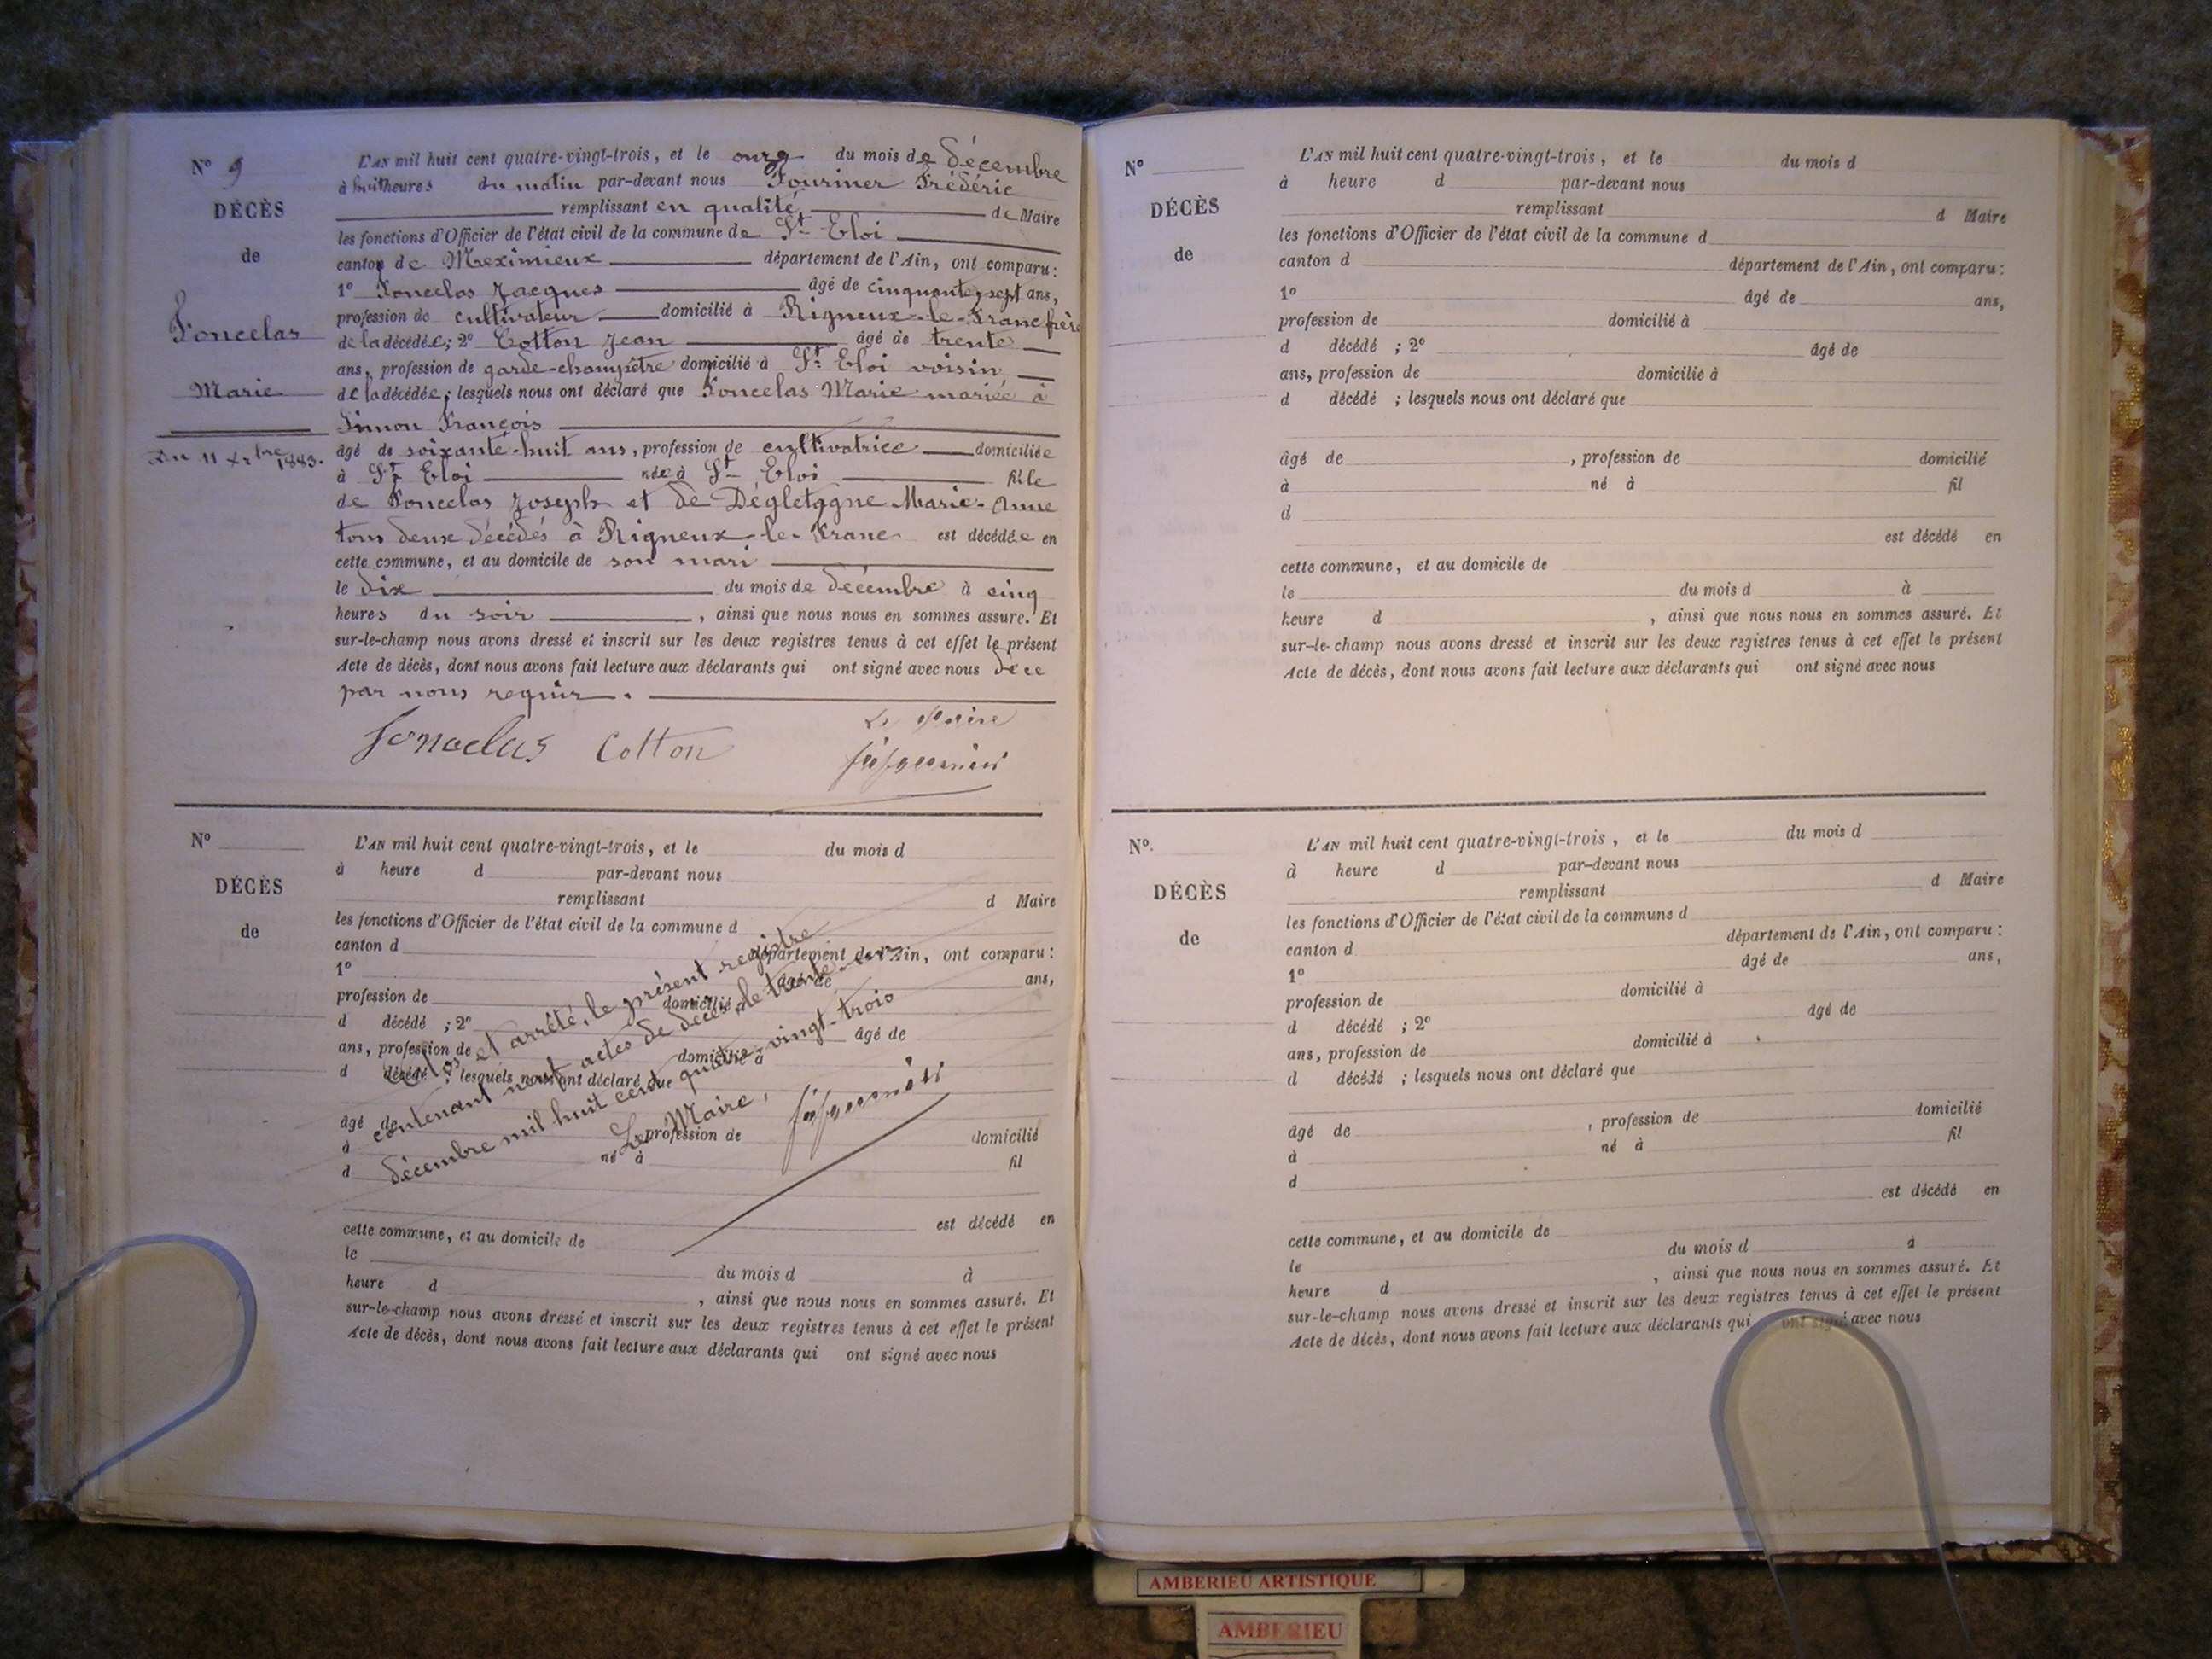 N° 9
DÉCÈS
de
Foncelas
Marie
Du 11 Xbre 1883.
L'AN mil huit cent quatre-vingt-trois, et le onze du mois de Décembre
à huit heures du matin par-devant nous Frédéric
remplissant en qualité de Maire
les fonctions d'Officier de l'état civil de la commune de St Eloi
canton de Meximieux département de l'Ain, ont comparu:
1° Foncelas Jacques âgé de cinquante-sept ans,
profession de cultivateur domicilié à Rigneux-le-Franc frère
de la décédée; 2° Cotton Jean âgé de trente
ans, profession de garde-champêtre domicilié à St Eloi voisin
de la décédée; lesquels nous ont déclaré que Foncelas Marie mariée à
Simon François
âgé de soixante-huit ans, profession de cultivatrice domiciliée
à St Eloi née à St Eloi fille
de Foncelas Joseph et de Marie-Anne
tous deux décédés à Rigneux-le-Franc est décédée en
cette commune, et au domicile de son mari
le dix du mois de décembre à cinq
heures du soir, ainsi que nous nous en sommes assuré. Et
sur-le-champ nous avons dressé et inscrit sur les deux registres tenus à cet effet le présent
Acte de décès, dont nous avons fait lecture aux déclarants qui ont signé avec nous de ce
par nous requis.
Le Maire
Foncelas Cotton
N°
DÉCÈS
de
L'AN mil huit cent quatre-vingt-trois, et le du mois d
à heure d par-devant nous
remplissant d Maire
les fonctions d'Officier de l'état civil de la commune d
canton d département de l'Ain, ont comparu:
1° âgé de ans,
profession de domicilié à
d décédé ; 2° âgé de
ans, profession de domicilié à
d décédé ; lesquels nous ont déclaré que
âgé de profession de domicilié
à né à fil
d
est décédé en
cette commune, et au domicile de
le du mois d à
heure d , ainsi que nous nous en sommes assuré. Et
sur-le-champ nous avons dressé et inscrit sur les deux registres tenus à cet effet le présent
Acte de décès, dont nous avons fait lecture aux déclarants qui ont signé avec nous
Clos et arrêté, le présent registre
contenant neuf actes de décès, le trente-un
décembre mil huit cent quatre-vingt-trois
Le Maire,
N°
DÉCÈS
de
L'AN mil huit cent quatre-vingt-trois, et le du mois d
à heure d par-devant nous
remplissant d Maire
les fonctions d'Officier de l'état civil de la commune d
canton d département de l'Ain, ont comparu:
1° âgé de ans,
profession de domicilié à
d décédé ; 2° âgé de
ans, profession de domicilié à
d décédé ; lesquels nous ont déclaré que
âgé de , profession de domicilié
à né à fil
d
est décédé en
cette commune, et au domicile de
le du mois d à
heure d , ainsi que nous nous en sommes assuré. Et
sur-le-champ nous avons dressé et inscrit sur les deux registres tenus à cet effet le présent
Acte de décès, dont nous avons fait lecture aux déclarants qui ont signé avec nous
N°.
DÉCÈS
de
L'AN mil huit cent quatre-vingt-trois, et le du mois d
à heure d par-devant nous
remplissant d Maire
les fonctions d'Officier de l'état civil de la commune d
canton d département de l'Ain, ont comparu:
1° âgé de ans,
profession de domicilié à
d décédé ; 2° âgé de
ans, profession de domicilié à
d décédé ; lesquels nous ont déclaré que
âgé de , profession de domicilié
à né à fil
d
est décédé en
cette commune, et au domicile de
le du mois d à
heure d , ainsi que nous nous en sommes assuré. Et
sur-le-champ nous avons dressé et inscrit sur les deux registres tenus à cet effet le présent
Acte de décès, dont nous avons fait lecture aux déclarants qui ont signé avec nous
AMBERIEU ARTISTIQUE
AMBERIEU